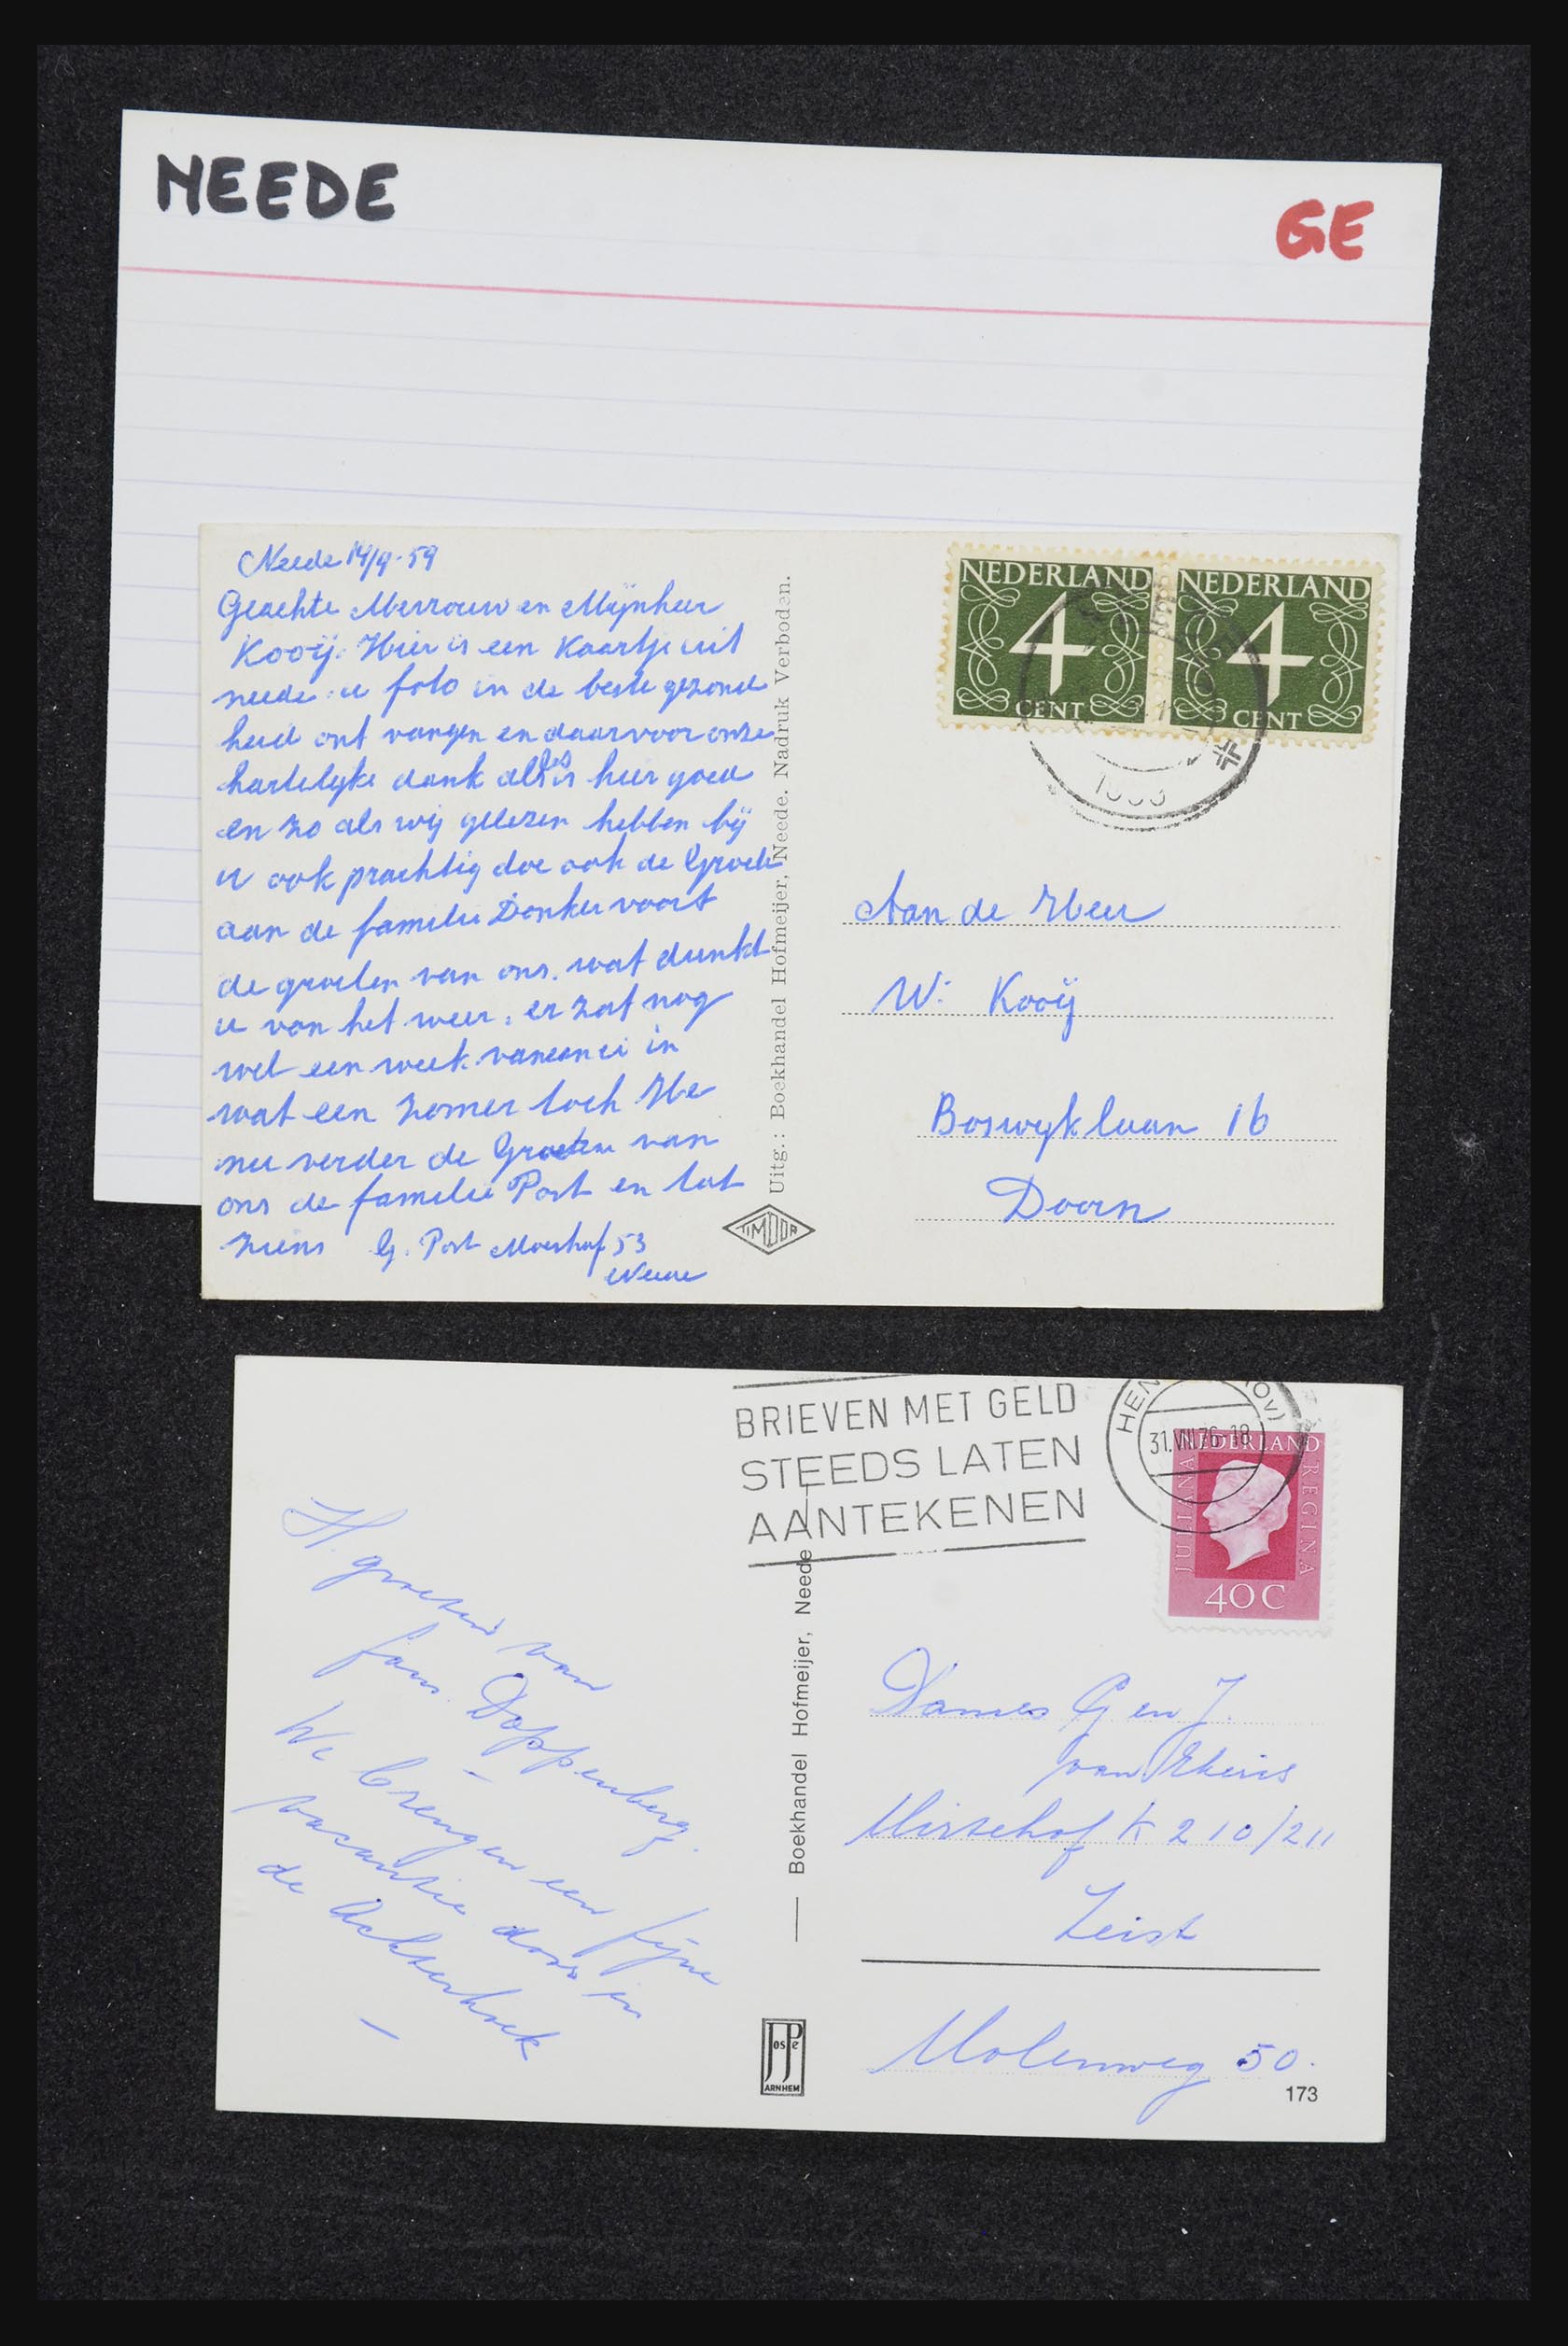 NEEDE
GE
Neede 14/9-59
Geachte Mevrouw en Mijnheer
Kooij. Hier is een Kaartje uit
neede u foto in de beste gezond
heid ont vangen en daarvoor onze
hartelijke dank alles is hier goed
en zo als wij gelezen hebben bij
u ook prachtig doe ook de Groete
aan de familie Donkervoort
de groeten van ons. wat dunkt
u van het weer, er zat nog
wel een week vancansi in
wat een zomer toch He
nu verder de Groeten van
ons de familie Post en tot
ziens G. Post Moerhof 53
Neede
Uitg.: Boekhandel Hofmeijer, Neede. Nadruk Verboden.
TIMDOR
NEDERLAND
4
CENT
NEDERLAND
4
CENT
Aan de Heer
W. Kooij
Boswyklaan 16
Doorn
BRIEVEN MET GELD
STEEDS LATEN
AANTEKENEN
HEN (OV)
31.VIII.76-18
NEDERLAND
JULIANA
REGINA
40C
H. groeten van
fam. Doppenberg.
We brengen een fijne
vacantie door in
de Achterhoek
Boekhandel Hofmeijer, Neede
JosPé
ARNHEM
Dames G en J.
van
Mirtehof K 210/211
Zeist
Molenweg 50.
173